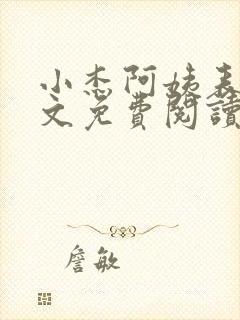 小杰阿姨表
文免費閱讀
詹敏